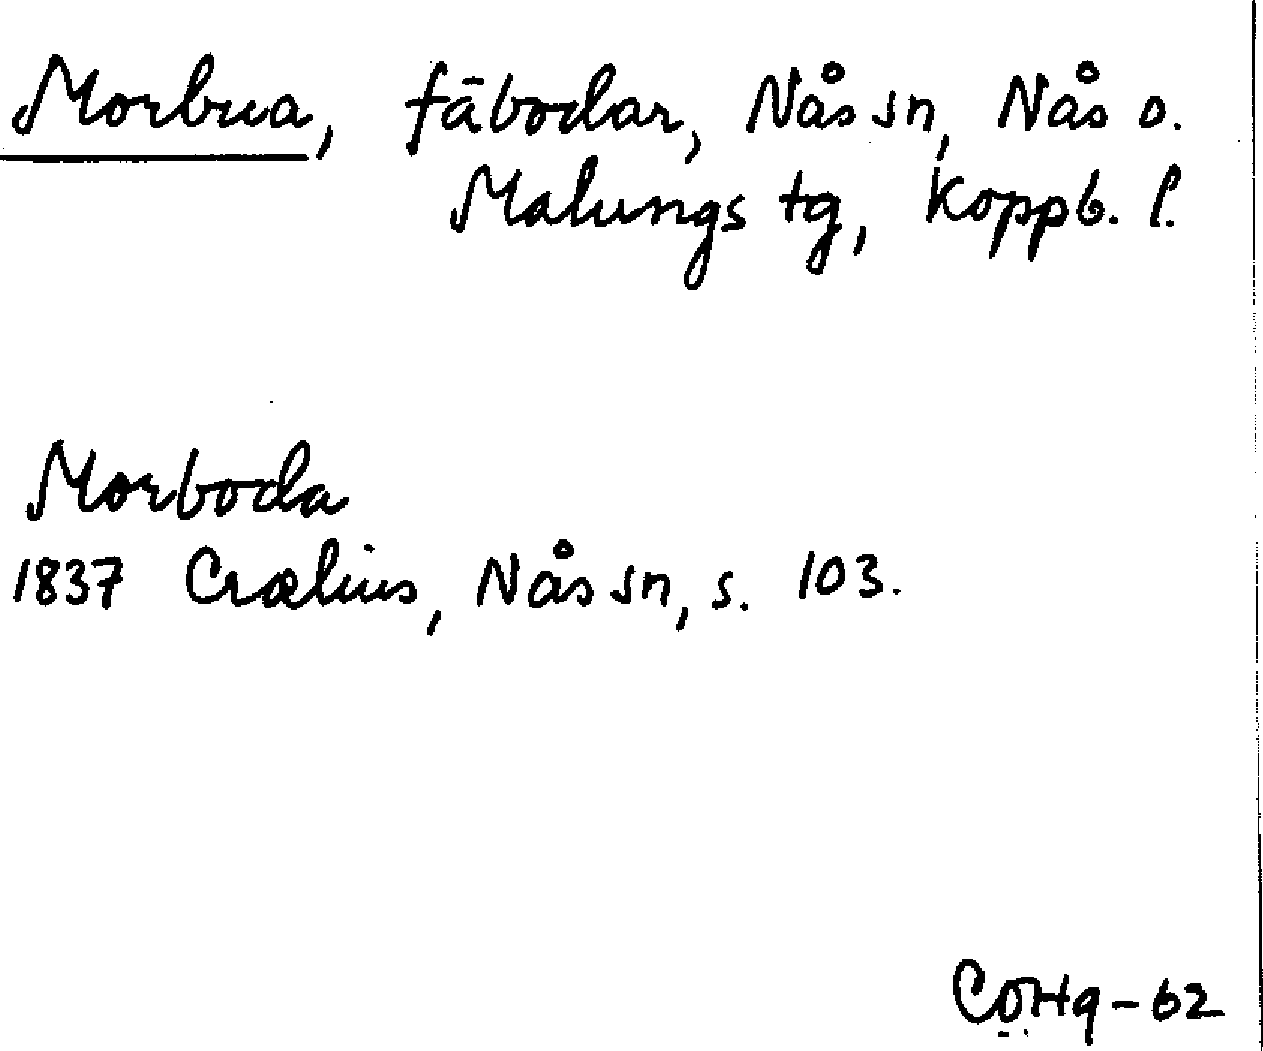 Morbua, fäbodar, Nås sn, Nås o.
Malungs tg, Koppb. l.
Morboda
1837 Crælius, Nås sn, s. 103.